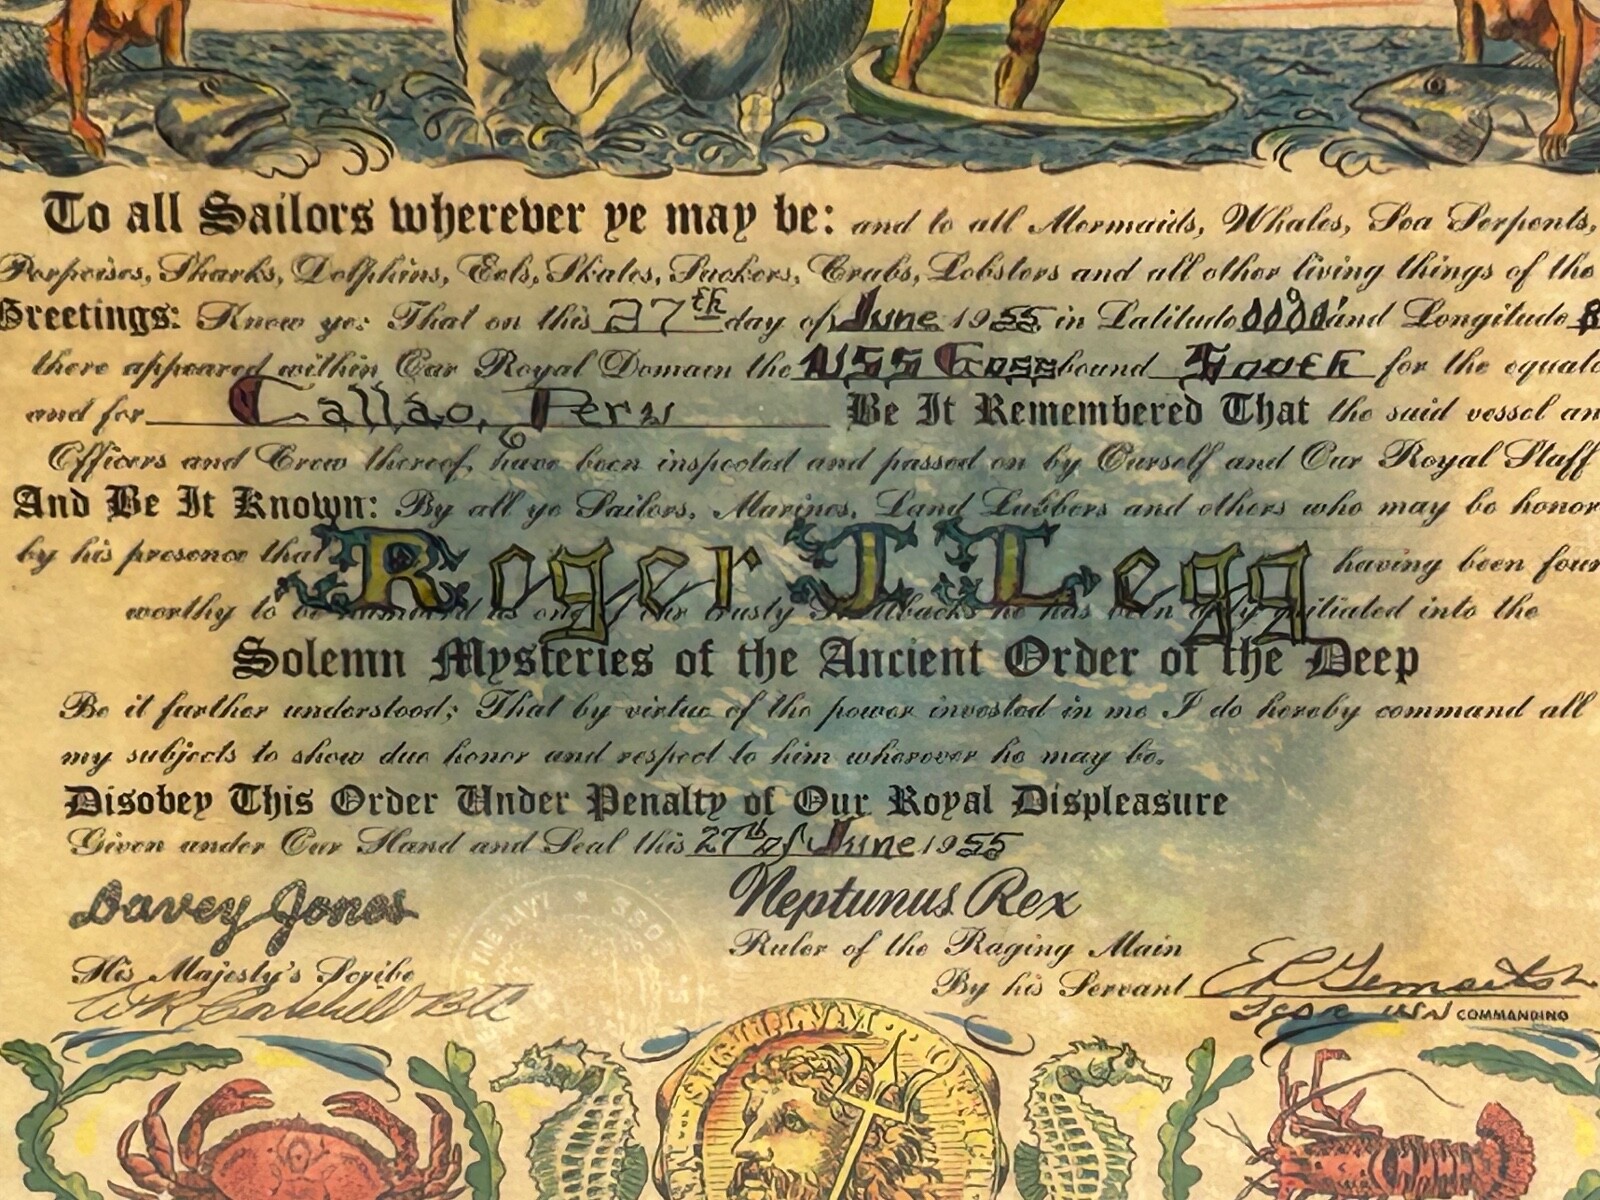 To all Sailors wherever ye may be: and to all Mermaids, Whales, Sea Serpents,
Porpoises, Sharks, Dolphins, Eels, Skates, Suckers, Crabs, Lobsters and all other living things of the
Greetings: Know ye: That on this 27th day of June 1955 in Latitude 0000 and Longitude
there appeared within Our Royal Domain the USS Goss bound South for the equato
and for Callao, Peru Be It Remembered That the said vessel an
Officers and Crew thereof, have been inspected and passed on by Ourself and Our Royal Staff
And Be It Known: By all ye Sailors, Marines, Land Lubbers and others who may be honor
by his presence that Roger J. Legg having been foun
worthy to be numbered as one of our trusty Shellbacks he has been duly initiated into the
Solemn Mysteries of the Ancient Order of the Deep
Be it further understood; That by virtue of the power invested in me I do hereby command all
my subjects to show due honor and respect to him wherever he may be.
Disobey This Order Under Penalty of Our Royal Displeasure
Given under Our Hand and Seal this 27th of June 1955
Davey Jones
Neptunus Rex
His Majesty's Scribe
Ruler of the Raging Main
By his Servant
USN COMMANDING